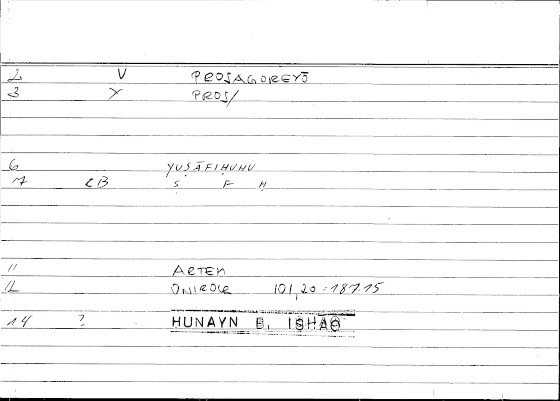 2 V PROSAGOREYŌ
3 Y PROS/
6 YUṢĀFIḤUHU
7 CB Ṣ F Ḥ
11 ARTEM
12 ONIROCR 101,20 = 187.15
14 ? HUNAYN B. ISHAQ